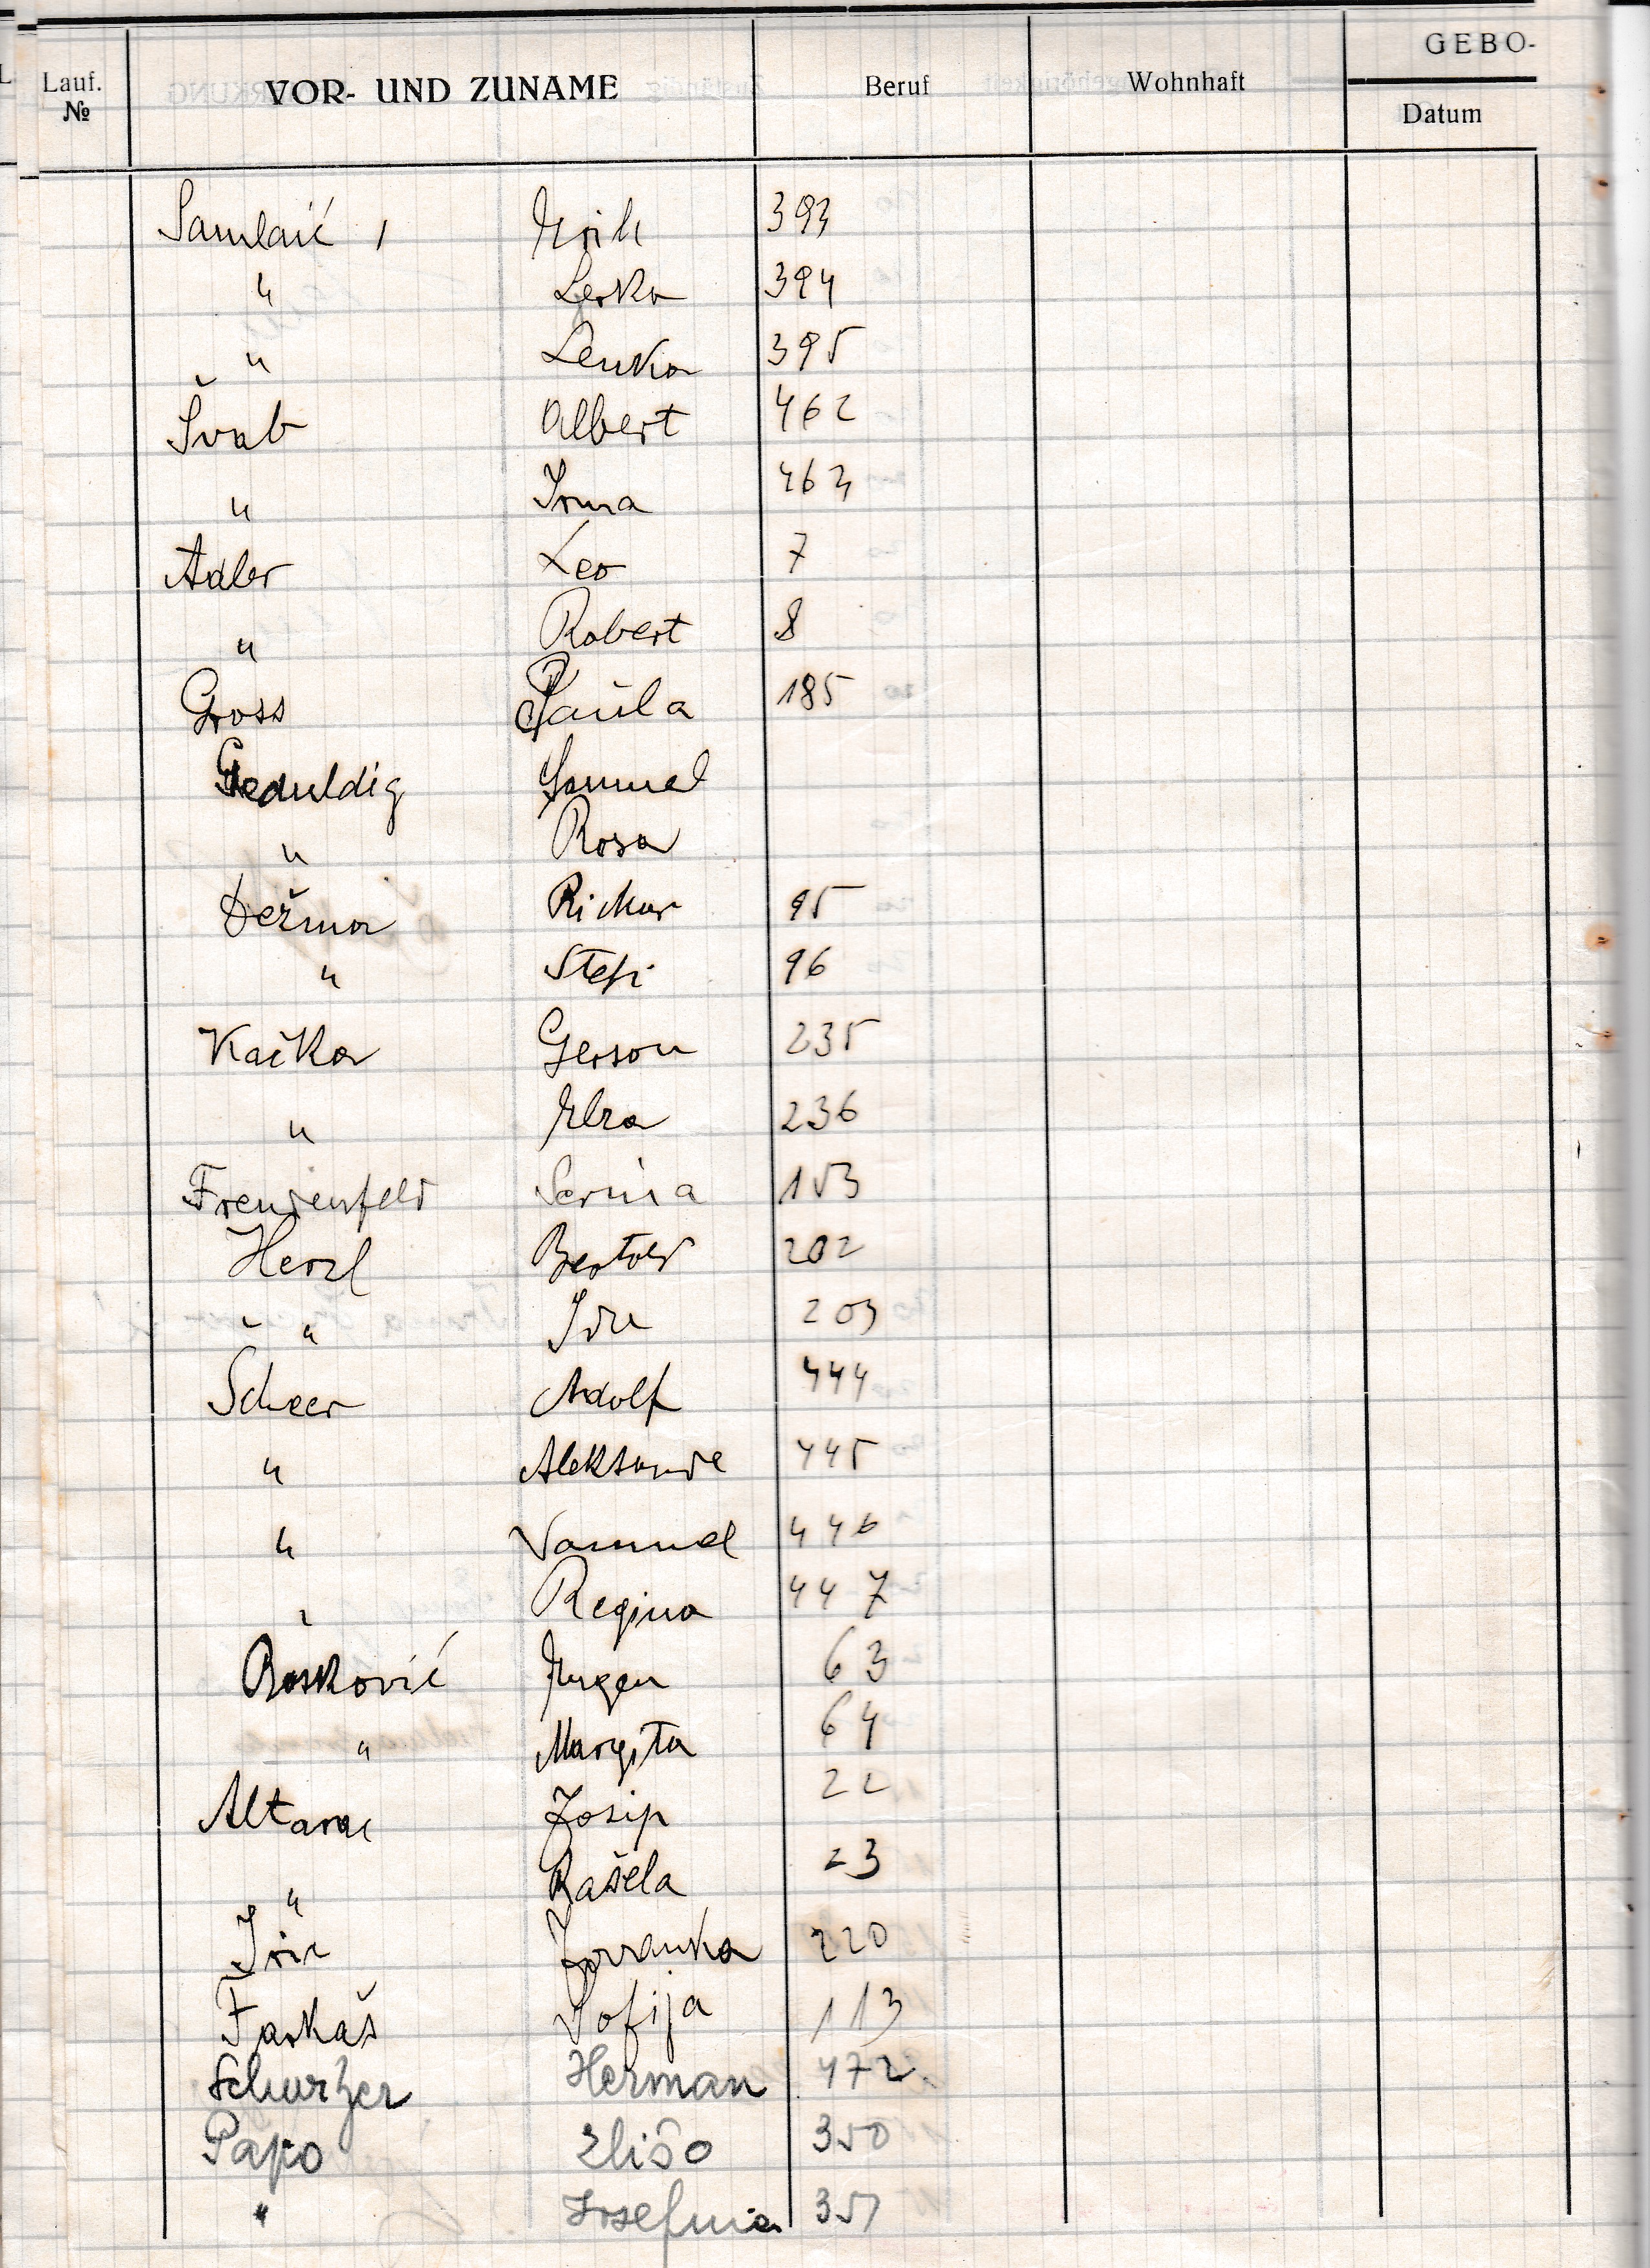 GEBO-
Lauf. № VOR- UND ZUNAME Beruf Wohnhaft Datum
Samlaić, Erih 393
" Lerka 394
" Lenka 395
Švab Albert 462
" Irma 463
Adler Leo 7
" Robert 8
Gross Paula 185
Geduldig Samuel
" Rosa
Dežma Rihar 95
" Stefi 96
Kačka Gerson 235
" Elza 236
Freudenfeld Serina 153
Herzl Bertold 202
" Ida 203
Scheer Adolf 444
" Aleksande 445
" Samuel 446
" Regina 447
Bošković Eugen 63
" Margita 64
Altarac Josip 22
" Rašela 23
Iric Jovanka 220
Farkaš Sofija 113
Schurzer Herman 472
Papo Elišo 350
" Josefina 351